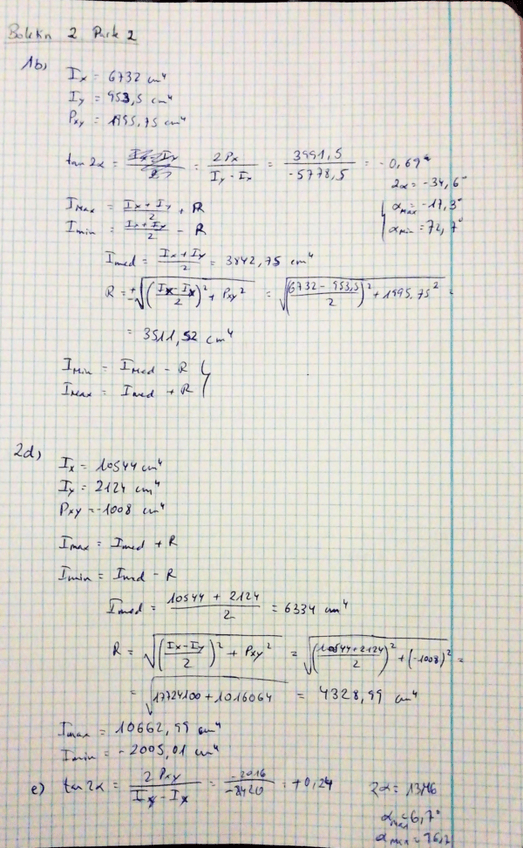 Boletin 2 Parte 2
1b)
Ix = 6732 cm⁴
Iy = 953,5 cm⁴
Pxy = 1995,75 cm⁴
tan 2α = = 2Px / (Iy - Ix) = 3991,5 / -5778,5 = -0,69
2α = -34,6°
IMax = (Ix + Iy)/2 + R
αmax = -17,3°
Imin = (Ix + Iy)/2 - R
αmin = 72,7°
Imed = (Ix + Iy)/2 = 3842,75 cm⁴
R = ±√(((Ix - Ix)/2)² + Pxy²) = √(((6732 - 953,5)/2)² + 1995,75²) =
= 3511,52 cm⁴
IMin = IMed - R
IMax = Imed + R
2d)
Ix = 10544 cm⁴
Iy = 2124 cm⁴
Pxy = -1008 cm⁴
Imax = Imed + R
Imin = Imed - R
Imed = (10544 + 2124)/2 = 6334 cm⁴
R = √(((Ix - Iy)/2)² + Pxy²) = √(((10544+2124)/2)² + (-1008)²) =
= √(17724100 + 1016064) = 4328,99 cm⁴
Imax = 10662,99 cm⁴
Imin = -2005,01 cm⁴
e) tan 2α = 2 Pxy / (Ix - Ix) = -2016 / -8420 = +0,24
2α = 13,46
αmax = 6,7°
αmin =